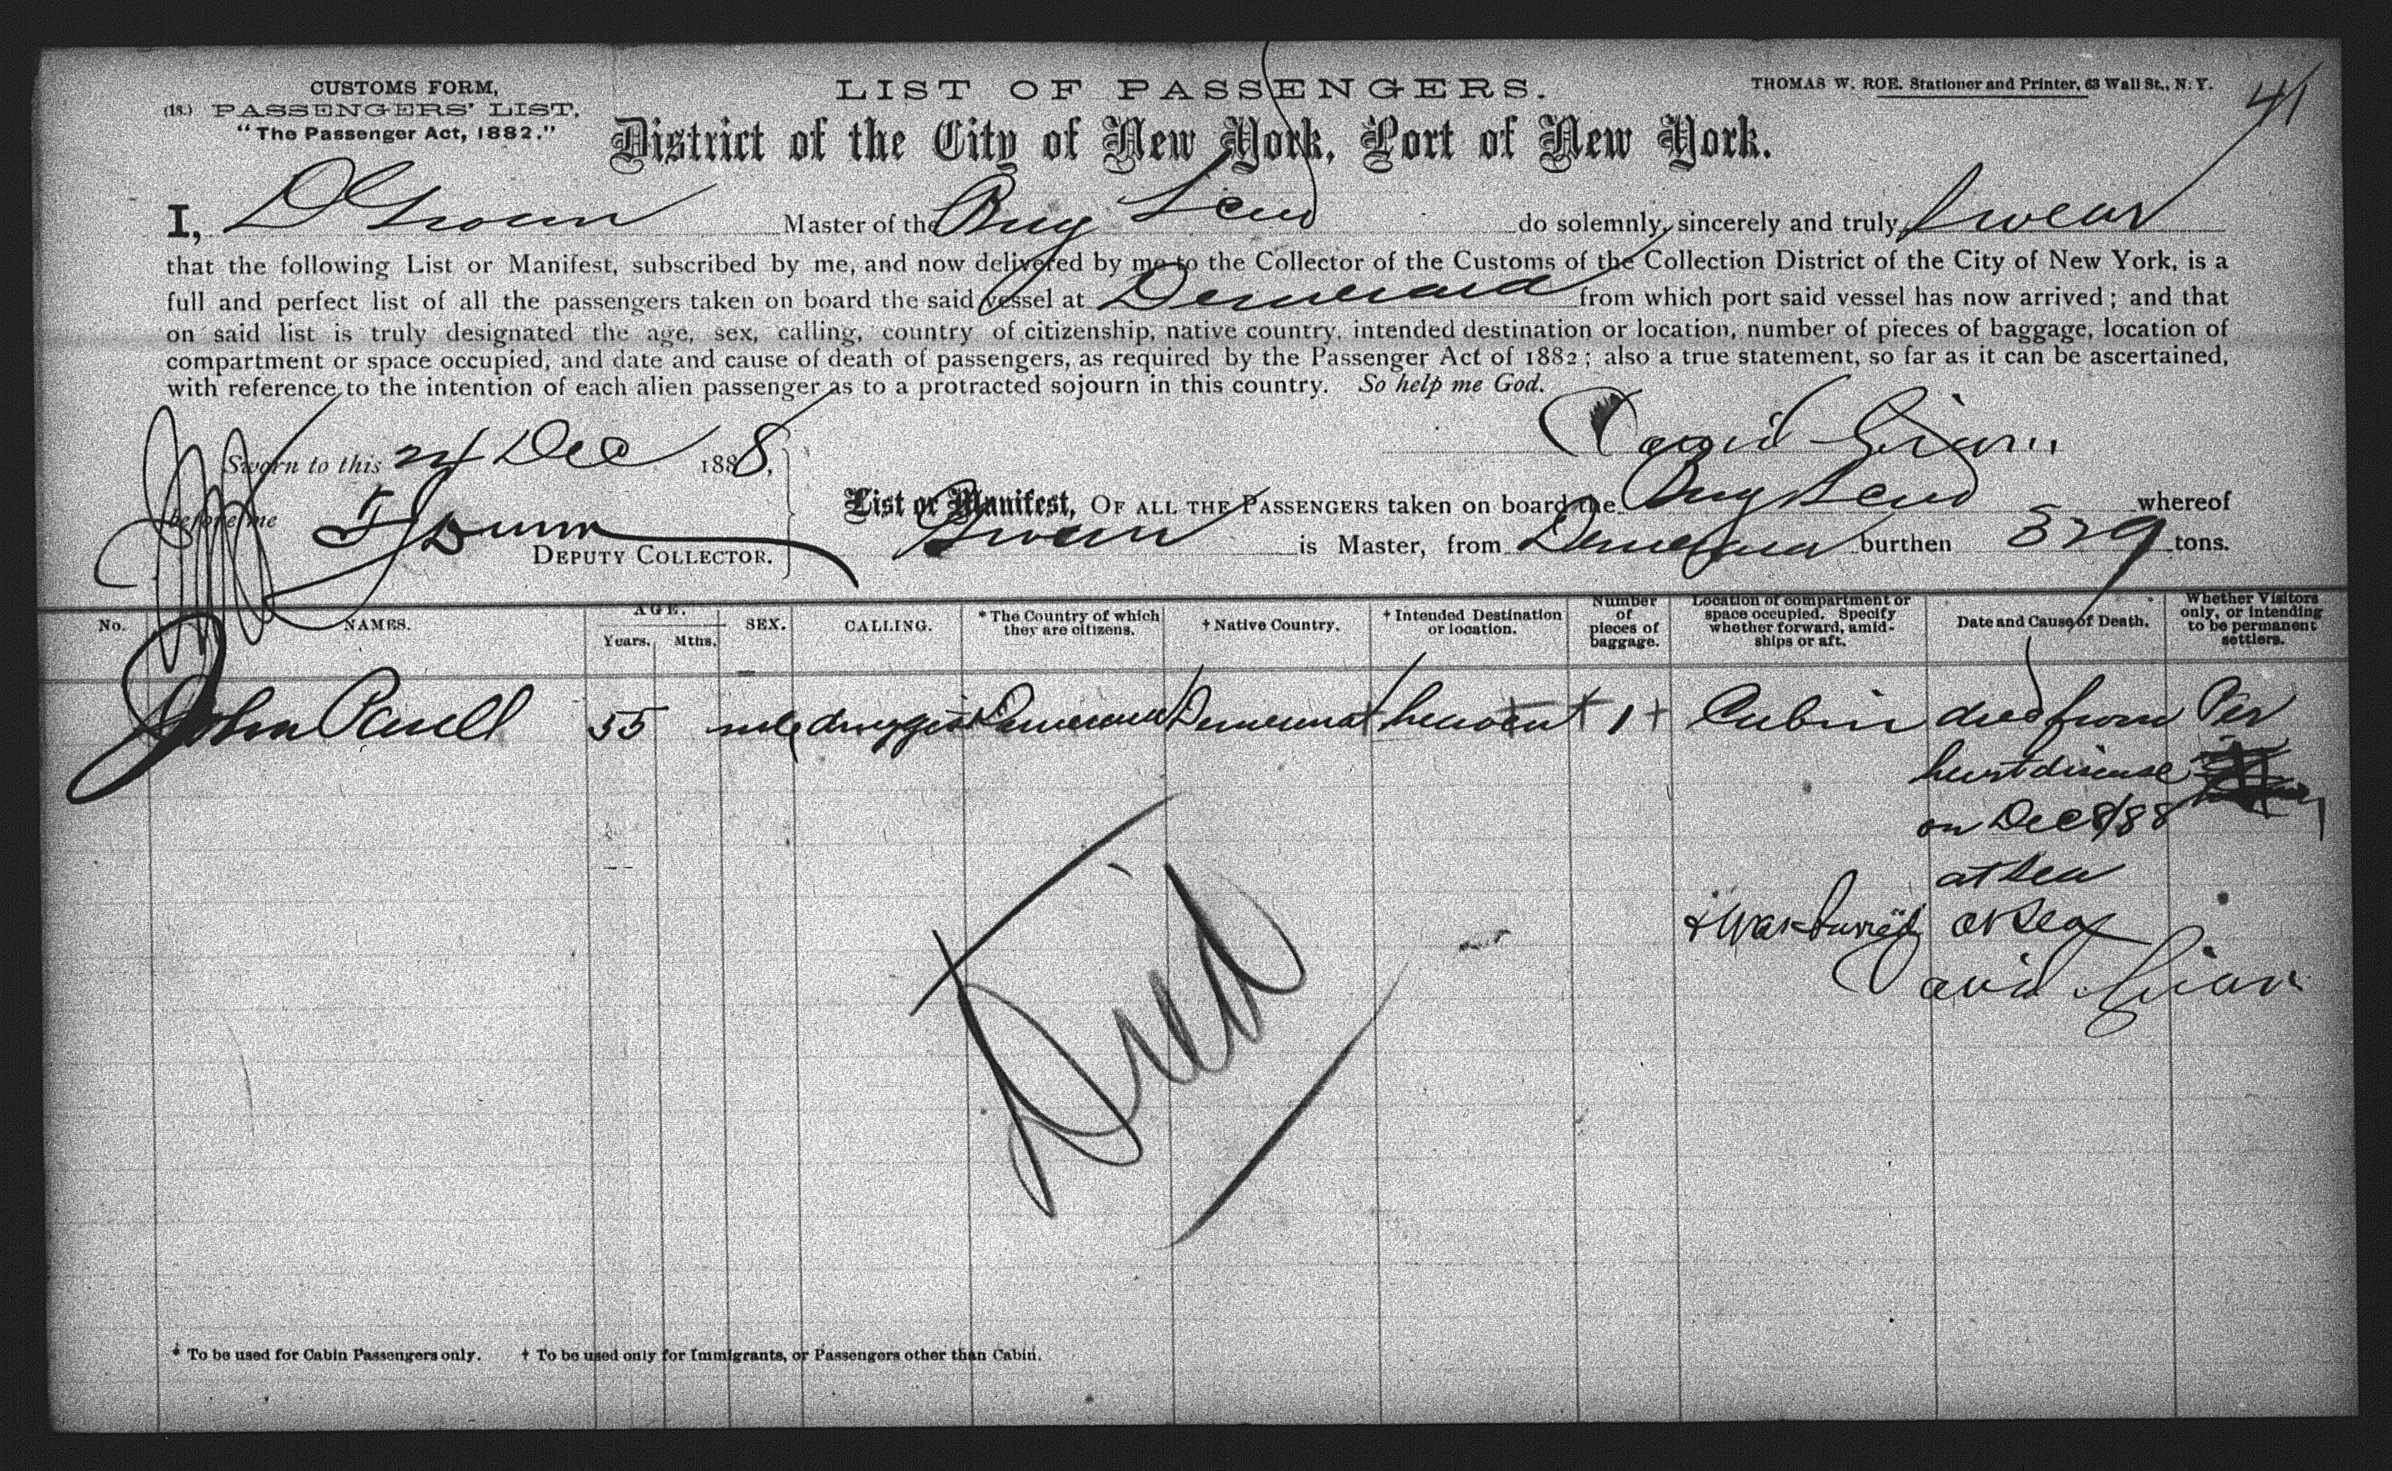 CUSTOMS FORM,
(18.) PASSENGERS' LIST,
"The Passenger Act, 1882."
LIST OF PASSENGERS.
THOMAS W. ROE. Stationer and Printer, 63 Wall St., N. Y.
41
District of the City of New York, Port of New York.
I, D Master of the do solemnly, sincerely and truly swear
that the following List or Manifest, subscribed by me, and now delivered by me to the Collector of the Customs of the Collection District of the City of New York, is a
full and perfect list of all the passengers taken on board the said vessel at Demerara from which port said vessel has now arrived; and that
on said list is truly designated the age, sex, calling, country of citizenship, native country, intended destination or location, number of pieces of baggage, location of
compartment or space occupied, and date and cause of death of passengers, as required by the Passenger Act of 1882; also a true statement, so far as it can be ascertained,
with reference to the intention of each alien passenger as to a protracted sojourn in this country. So help me God.
David
Sworn to this 24 Dec 1888,
before me
DEPUTY COLLECTOR.
List or Manifest, OF ALL THE PASSENGERS taken on board the whereof
is Master, from Demerara burthen 329 tons.
No. NAMES. AGE. Years. Mths. SEX. CALLING. * The Country of which they are citizens. † Native Country. † Intended Destination or location. Number of pieces of baggage. Location of compartment or space occupied. Specify whether forward, amid-ships or aft. Date and Cause of Death. Whether Visitors only, or intending to be permanent settlers.
John 55 male druggist Demerara Demerara heaven 1 Cabin died from Per
heart disease
on Dec 8/88
at Sea
& was buried at Sea
David
Died
* To be used for Cabin Passengers only. † To be used only for Immigrants, or Passengers other than Cabin.